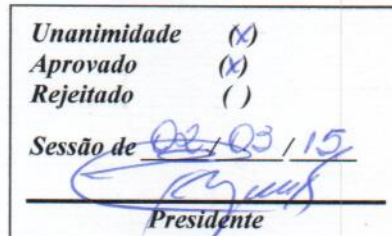 Unanimidade (x)
Aprovado (x)
Rejeitado ( )
Sessão de 02/03/15
Presidente